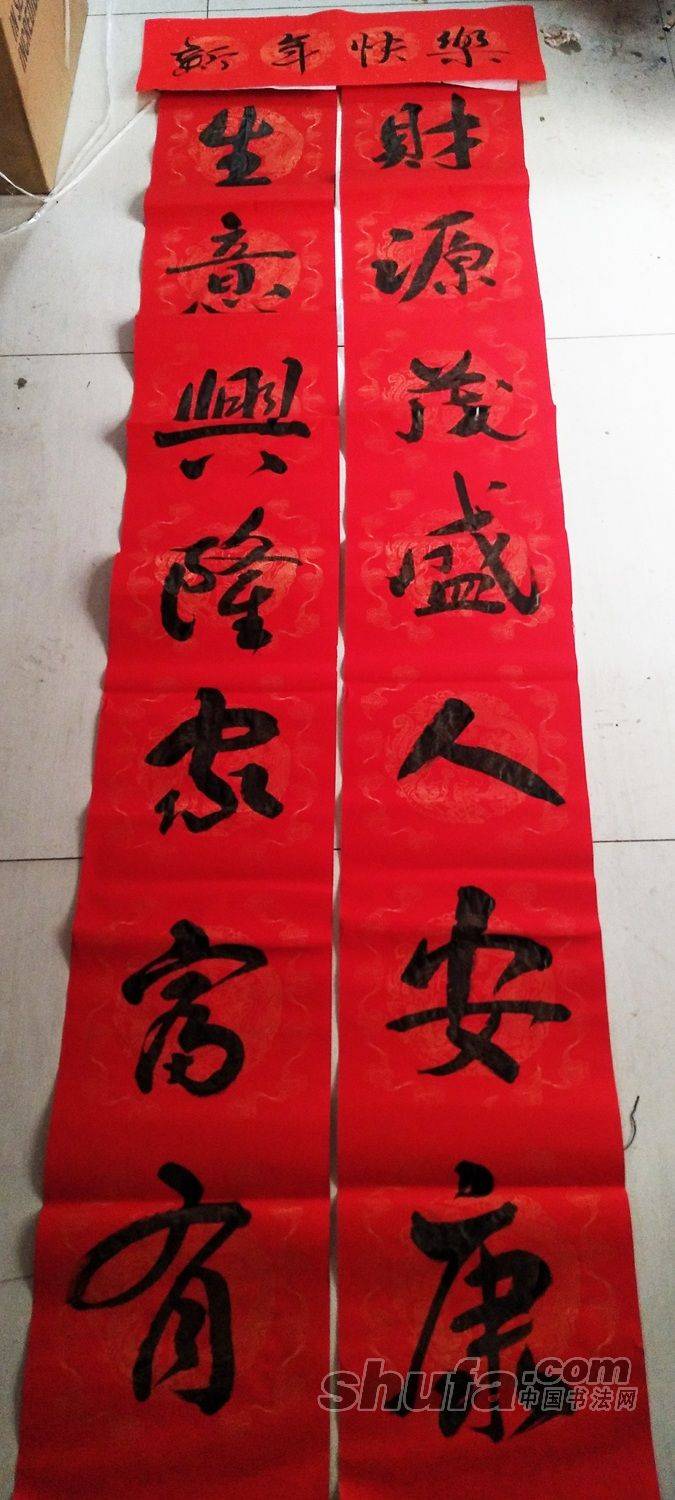 新年快樂
生意興隆家富有
財源茂盛人安康
shufa.com
中国书法网